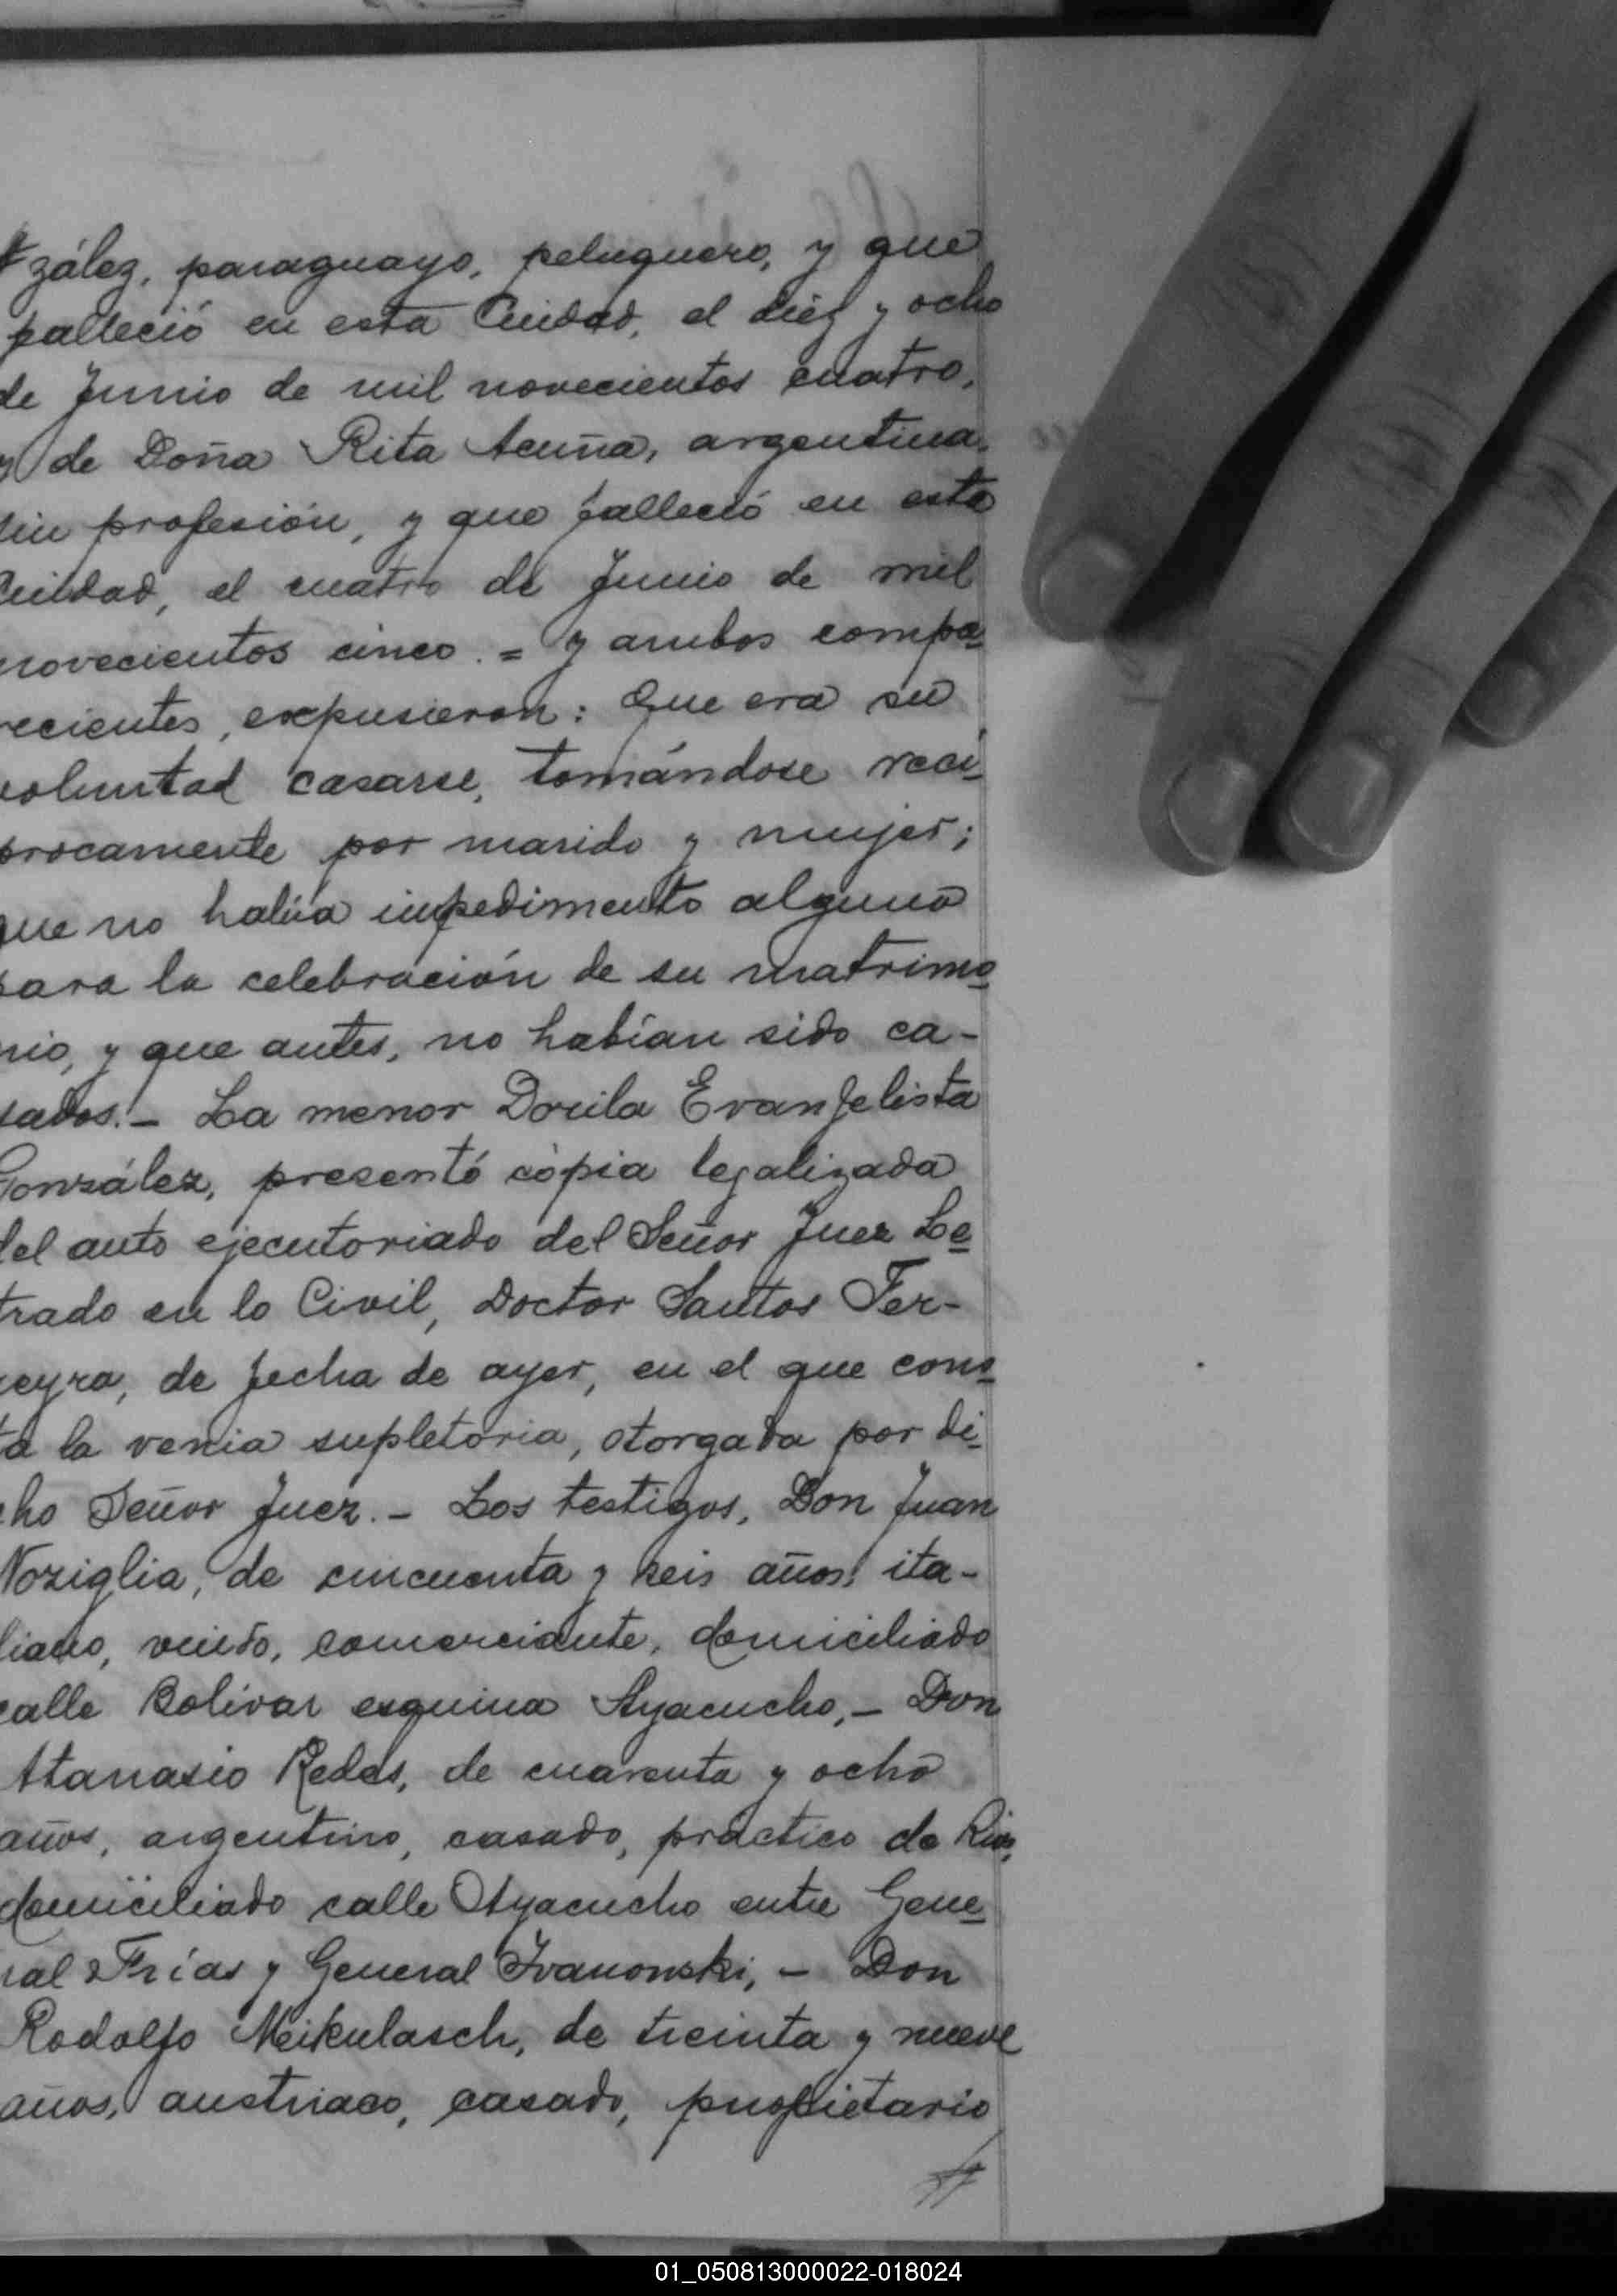 zález, paraguayo, peluquero, y que
falleció en esta Ciudad, el diéz y ocho
de Junio de mil novecientos cuatro,
y de Doña Rita Acuña, argentina,
sin profesión, y que falleció en esta
Ciudad, el cuatro de Junio de mil
novecientos cinco. = y ambos compa-
recientes, expusieron: Que era su
voluntad casarse, tomándose recí-
procamente por marido y mujer;
que no había impedimento alguno
para la celebración de su matrimo-
nio, y que antes, no habían sido ca-
sados. - La menor Dorila Evanjelista
González, presentó cópia legalizada
del auto ejecutoriado del Señor Juez Le-
trado en lo Civil, Doctor Santos Fer-
reyra, de fecha de ayer, en el que cons-
ta la venia supletoria, otorgada por di-
cho Señor Juez. - Los testigos, Don Juan
Noziglia, de cincuenta y seis años, ita-
liano, viudo, comerciante, domiciliado
calle Bolívar esquina Ayacucho, - Don
Atanasio Redes, de cuarenta y ocho
años, argentino, casado, práctico de Rios,
domiciliado calle Ayacucho entre Gene-
ral Frías y General Ivanowski, - Don
Rodolfo Meikulasch, de treinta y nueve
años, austriaco, casado, propietario
01_050813000022-018024